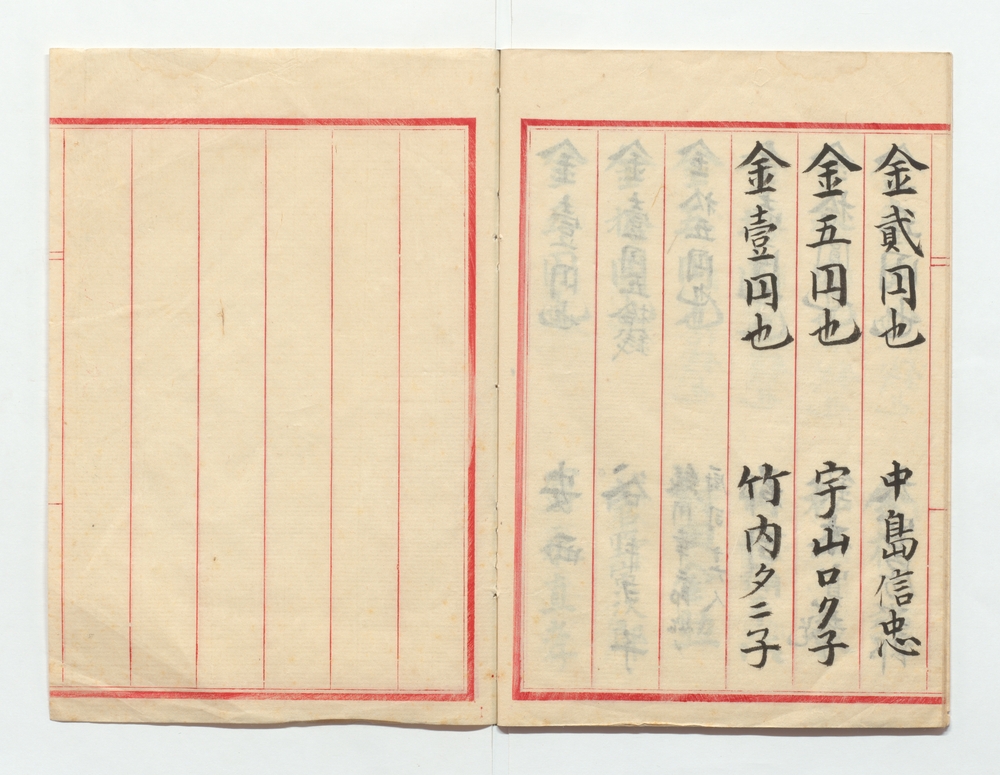 金貳円也 中島信忠
金五円也 宇山ロク子
金壹円也 竹内タニ子